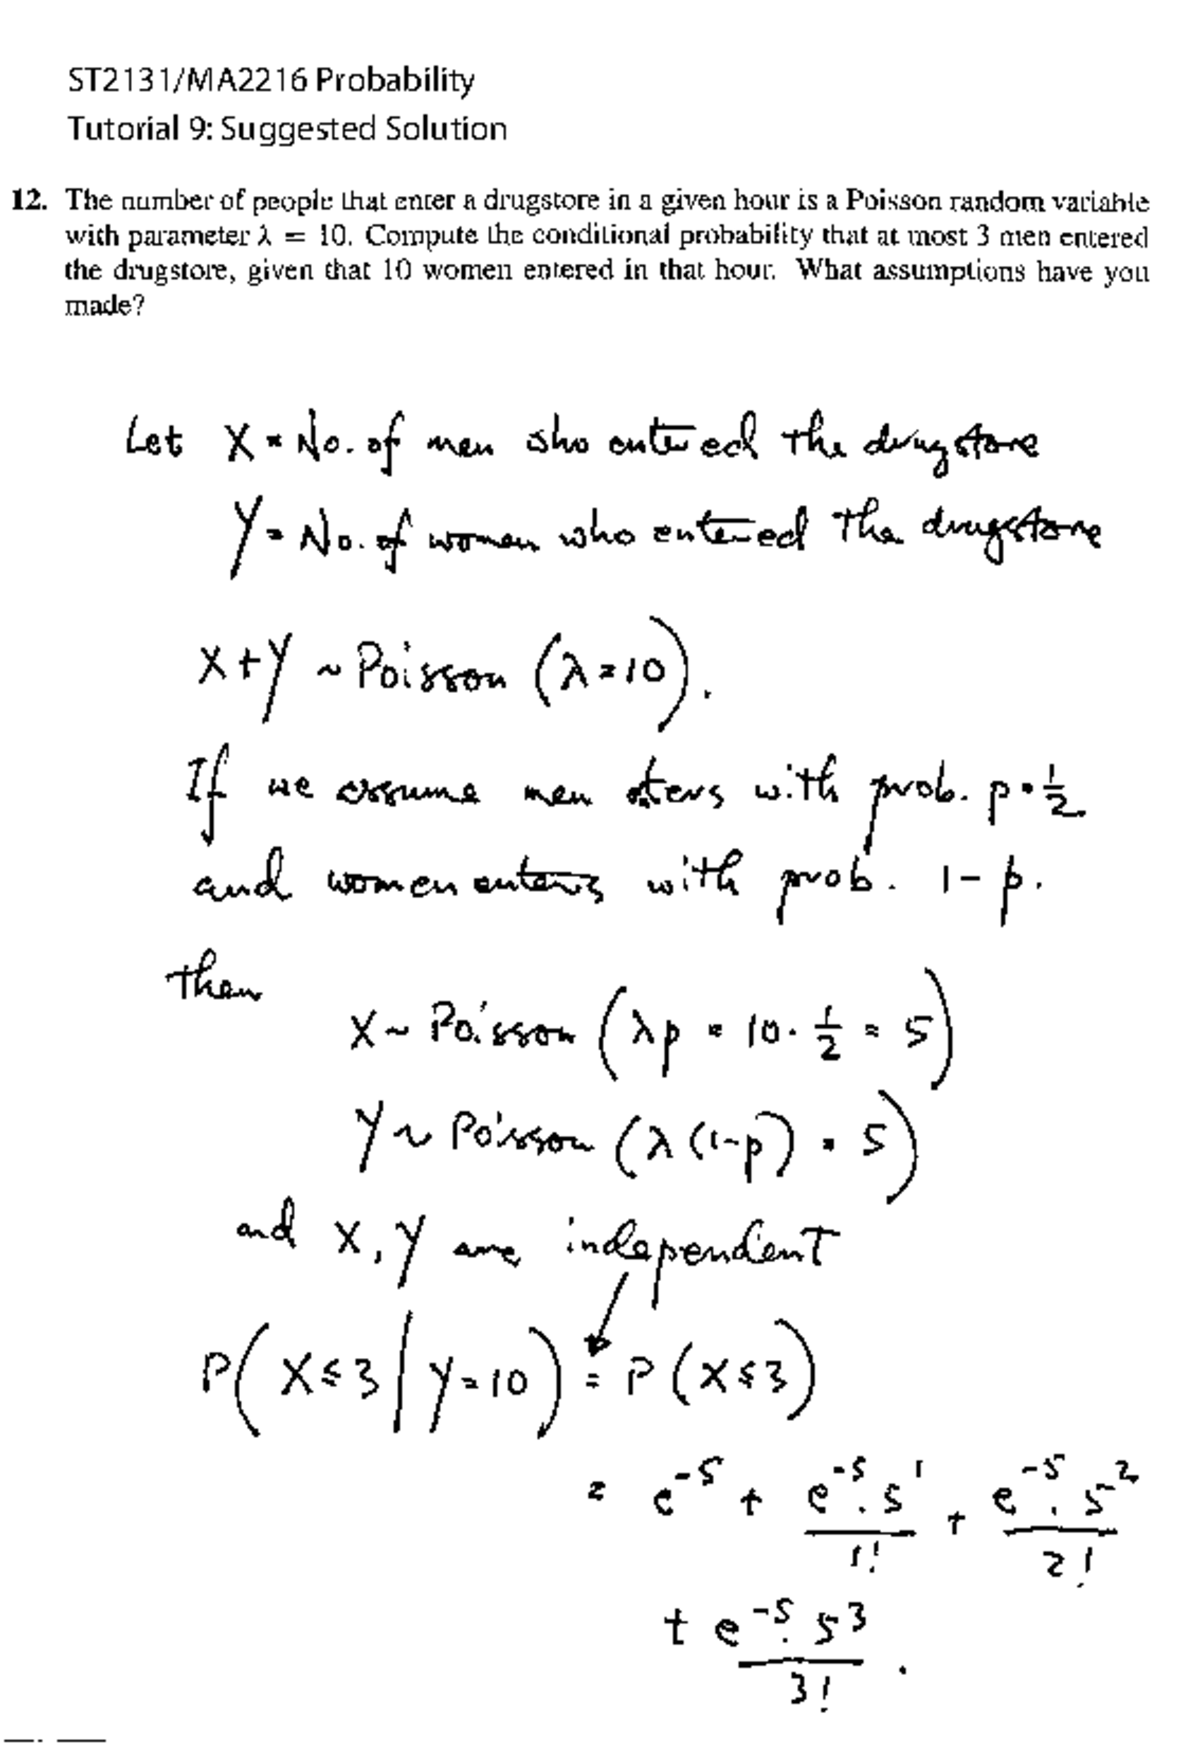 ST2131/MA2216 Probability
Tutorial 9: Suggested Solution
12. The number of people that enter a drugstore in a given hour is a Poisson random variable
with parameter λ = 10. Compute the conditional probability that at most 3 men entered
the drugstore, given that 10 women entered in that hour. What assumptions have you
made?
Let X = No. of men who entered the drugstore
Y = No. of women who entered the drugstore
X+Y ~ Poisson (λ=10).
If we assume men enters with prob. p = 1/2
and women enters with prob. 1-p.
then
X ~ Poisson (λp = 10 · 1/2 = 5)
Y ~ Poisson (λ(1-p) = 5)
and X, Y are independent
P(X≤3 | Y=10) = P(X≤3)
= e^-5 + e^-5 · 5^1 / 1! + e^-5 · 5^2 / 2!
+ e^-5 · 5^3 / 3! .